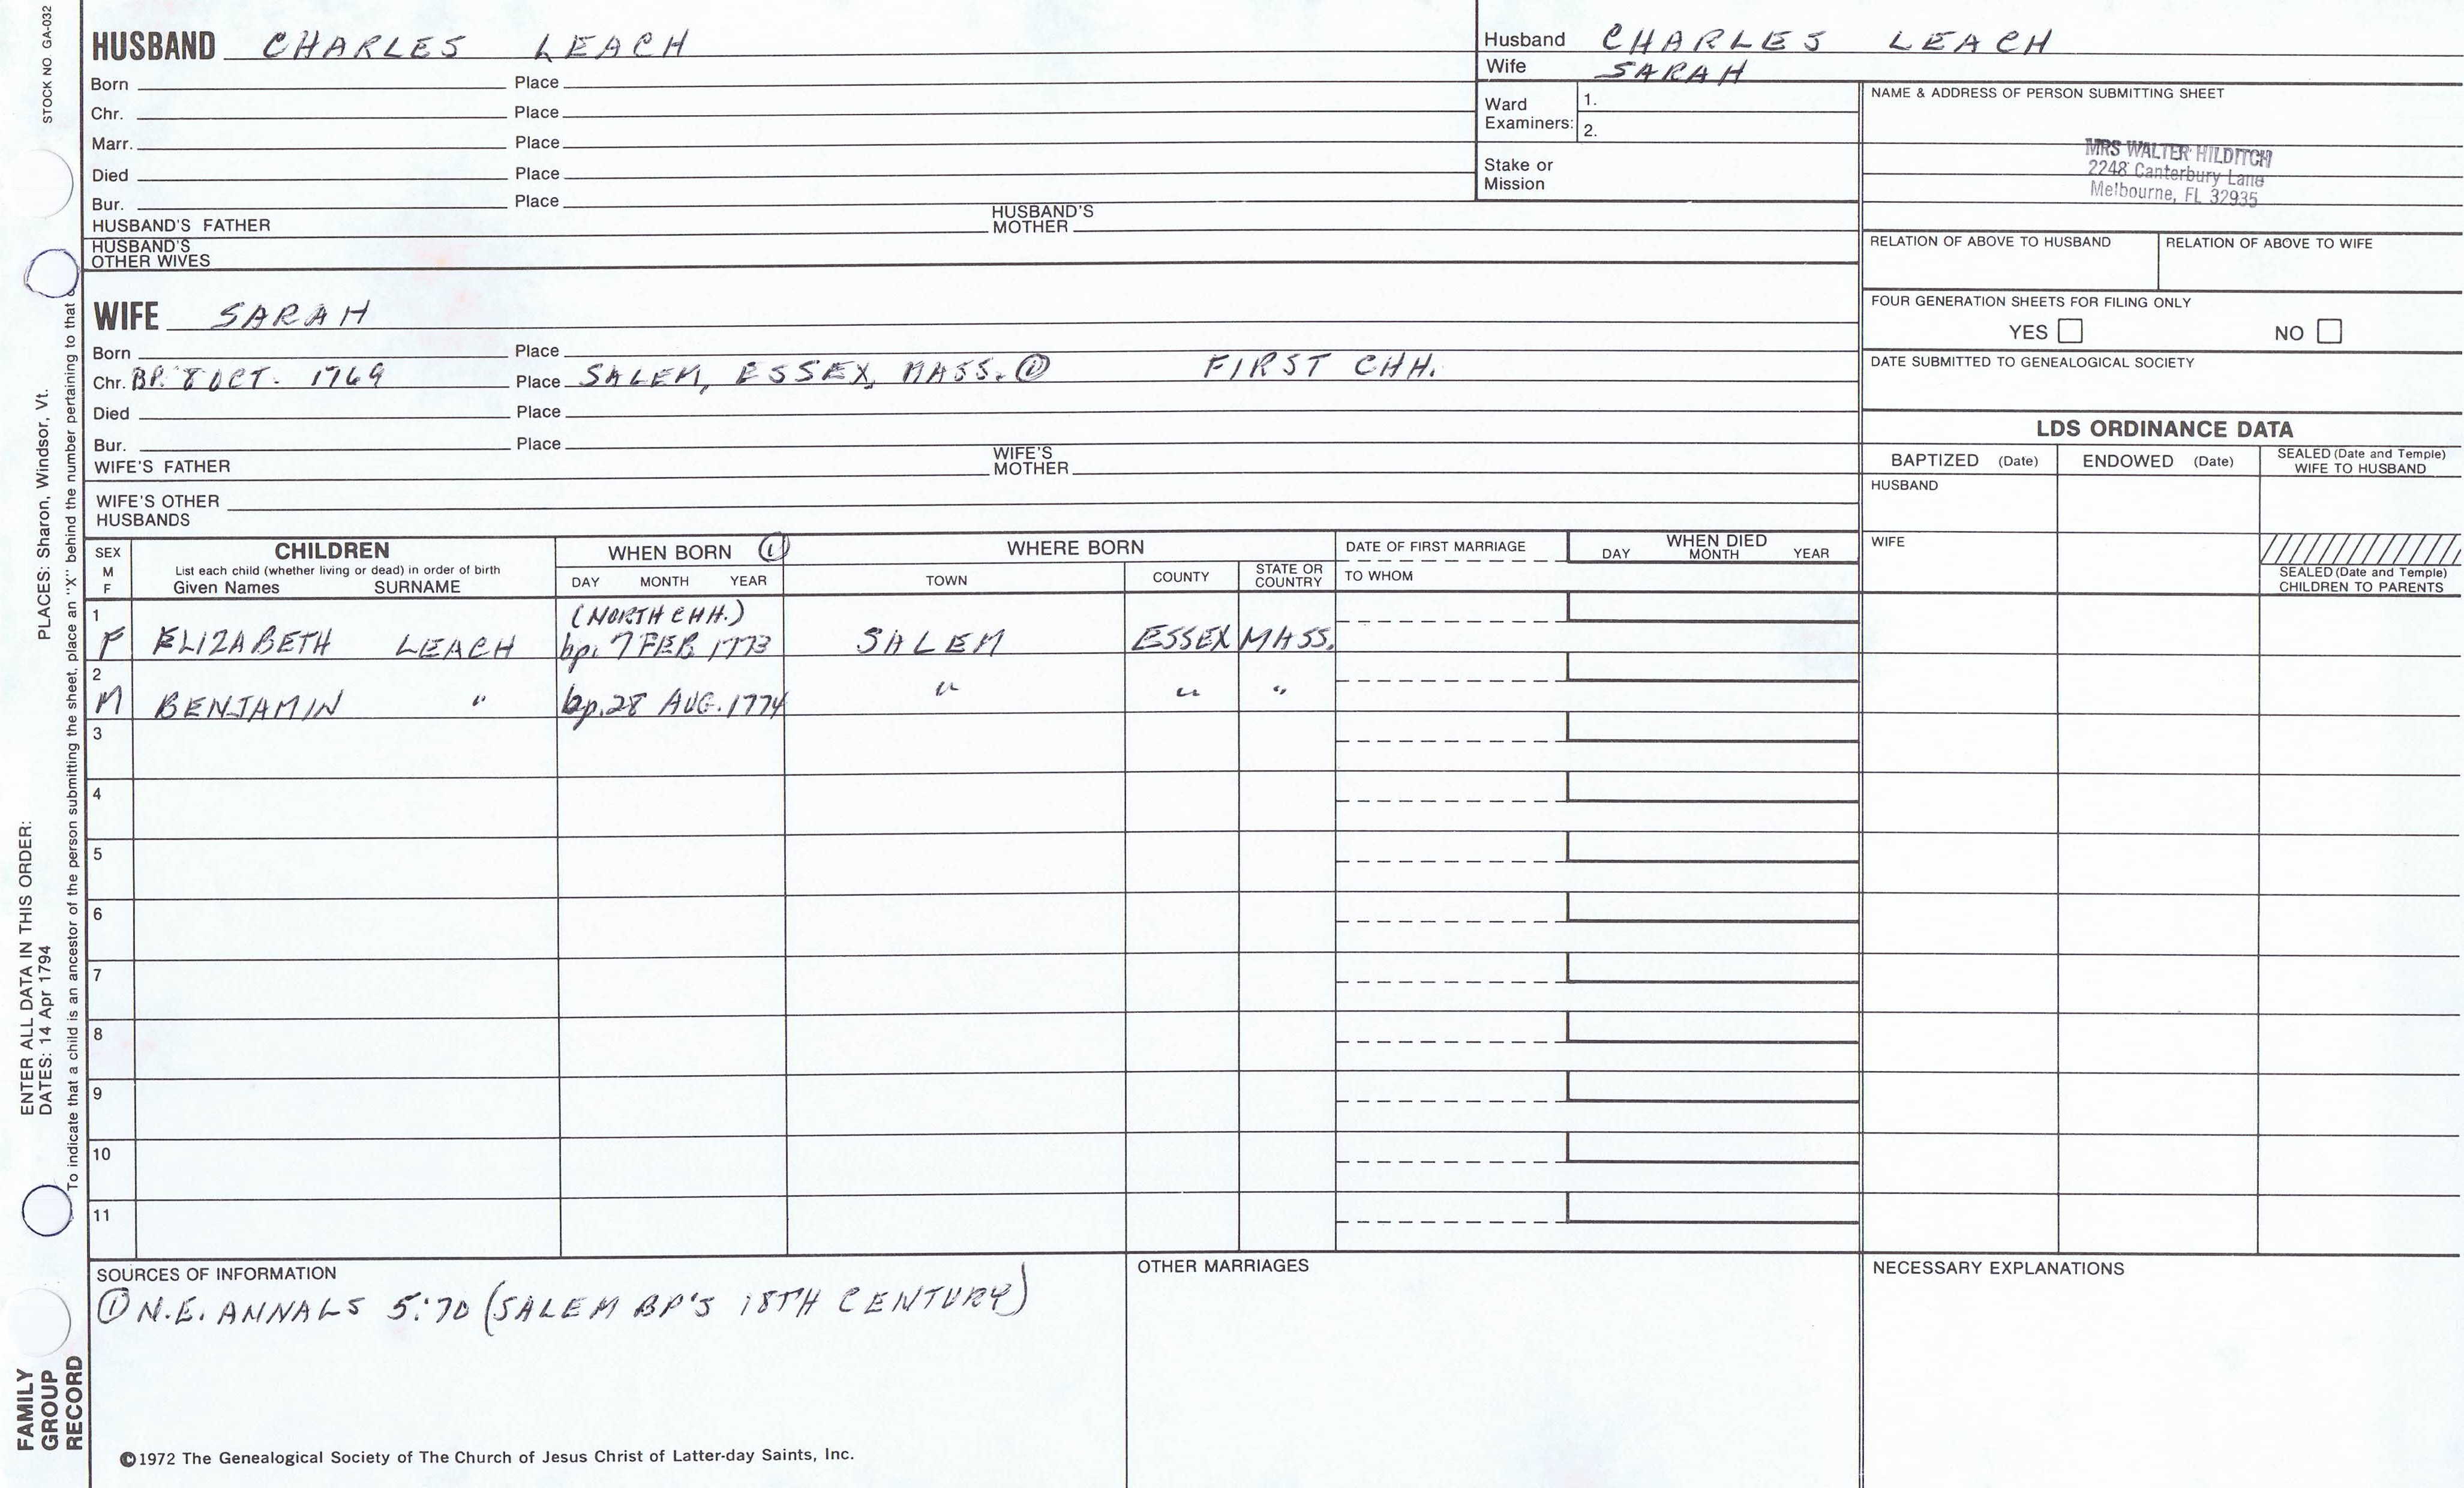 STOCK NO. GA-032
HUSBAND CHARLES LEACH
Born Place
Chr. Place
Marr. Place
Died Place
Bur. Place
HUSBAND'S FATHER HUSBAND'S MOTHER
HUSBAND'S OTHER WIVES
Husband CHARLES LEACH
Wife SARAH
Ward Examiners: 1.
2.
Stake or Mission
NAME & ADDRESS OF PERSON SUBMITTING SHEET
MRS WALTER HILDITCH
2248 Canterbury Lane
Melbourne, FL 32935
RELATION OF ABOVE TO HUSBAND RELATION OF ABOVE TO WIFE
FOUR GENERATION SHEETS FOR FILING ONLY
YES NO
DATE SUBMITTED TO GENEALOGICAL SOCIETY
WIFE SARAH
Born Place
Chr. BP. 8 OCT. 1769 Place SALEM, ESSEX, MASS. ① FIRST CHH.
Died Place
Bur. Place
WIFE'S FATHER WIFE'S MOTHER
WIFE'S OTHER HUSBANDS
LDS ORDINANCE DATA
BAPTIZED (Date) ENDOWED (Date) SEALED (Date and Temple) WIFE TO HUSBAND
HUSBAND
WIFE
SEALED (Date and Temple) CHILDREN TO PARENTS
SEX M F
CHILDREN
List each child (whether living or dead) in order of birth
Given Names SURNAME
WHEN BORN ①
DAY MONTH YEAR
WHERE BORN
TOWN COUNTY STATE OR COUNTRY
DATE OF FIRST MARRIAGE
TO WHOM
WHEN DIED
DAY MONTH YEAR
1 (NORTH CHH.)
F ELIZABETH LEACH bp. 7 FEB 1773 SALEM ESSEX MASS.
2
M BENJAMIN " bp. 28 AUG. 1774 " " "
3
4
5
6
7
8
9
10
11
SOURCES OF INFORMATION
① N.E. ANNALS 5:70 (SALEM BP'S 18TH CENTURY)
OTHER MARRIAGES
NECESSARY EXPLANATIONS
©1972 The Genealogical Society of The Church of Jesus Christ of Latter-day Saints, Inc.
ENTER ALL DATA IN THIS ORDER:
DATES: 14 Apr 1794 PLACES: Sharon, Windsor, Vt.
To indicate that a child is an ancestor of the person submitting the sheet, place an "X" behind the number pertaining to that
FAMILY
GROUP
RECORD